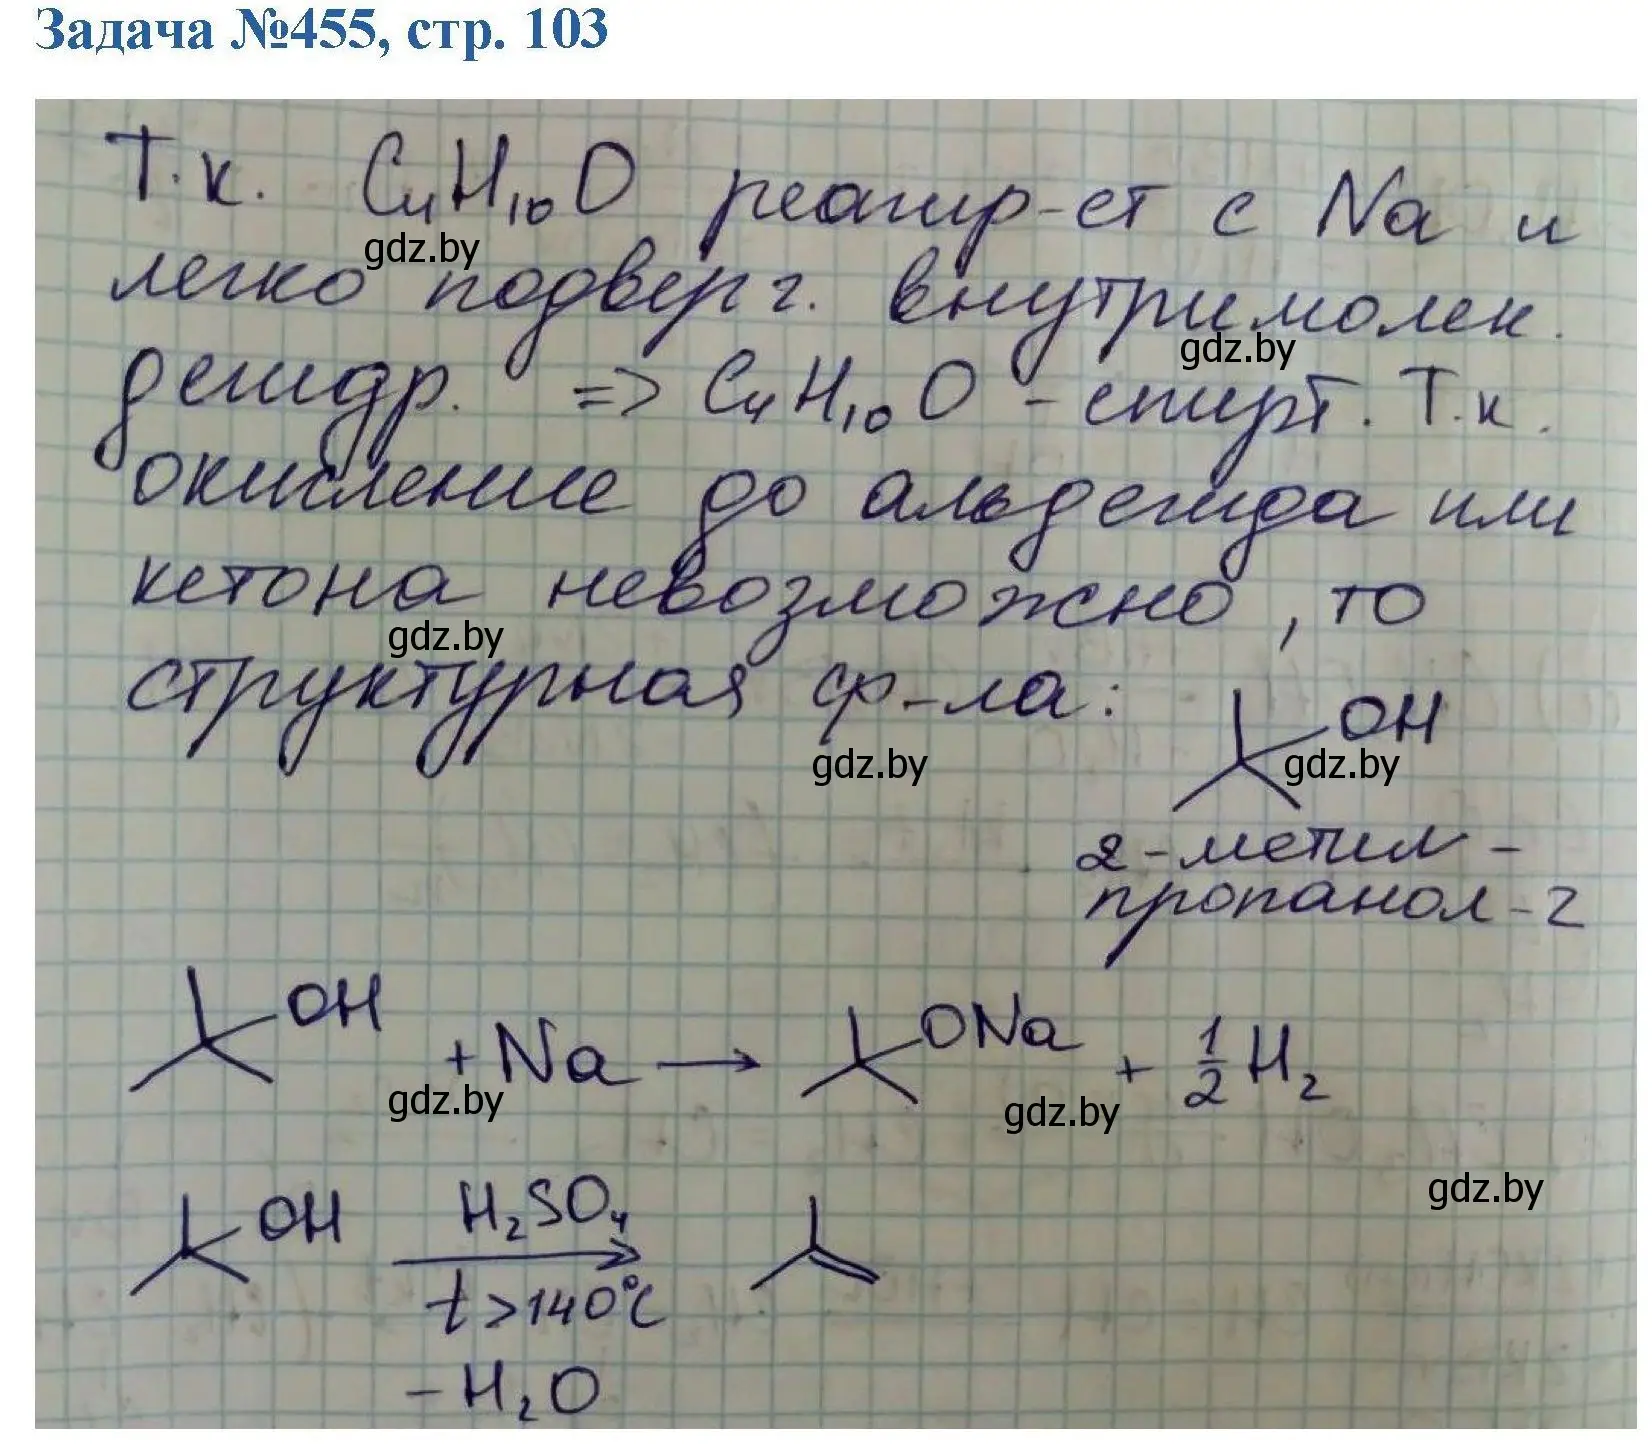 Задача №455, стр. 103
Т.к. C₄H₁₀O реагир-ет с Na и
gdz.by
легко подверг. внутримолек.
gdz.by
дегидр. => C₄H₁₀O - спирт. Т.к.
окисление до альдегида или
кетона невозможно, то
gdz.by
структурная ф-ла:
OH
gdz.by gdz.by
2-метил-
пропанол-2
OH + Na → ONa + 1/2 H₂
gdz.by gdz.by
gdz.by
OH H₂SO₄
t>140°C
-H₂O